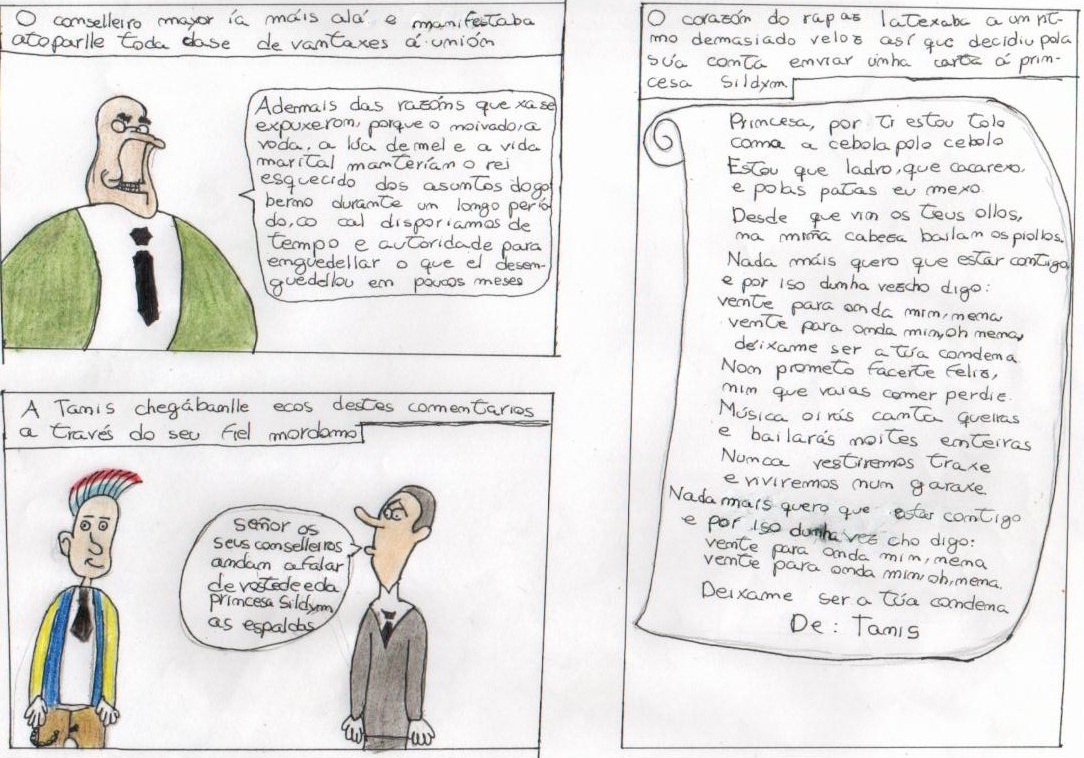 O conselleiro mayor ía máis alá e manifestaba
atoparlle toda clase de vantaxes á unión
Ademais das razóns que xa se
expuxeron, porque o noivado, a
voda, a lúa de mel e a vida
marital manterían o rei
esquecido dos asuntos do go
berno durante un longo perio
do, co cal disporiamos de
tempo e autoridade para
enguedellar o que el desen-
guedellou en poucos meses
A Tanis chegábanlle ecos destes comentarios
a través do seu fiel mordomo
señor os
seus conselleiros
andan a falar
de vostede e da
princesa Sildxm
as espaldas
O corazón do rapaz latexaba a un rit-
mo demasiado veloz así que decidiu pola
súa conta enviar unha carta á prin-
cesa Sildxm
Princesa, por ti estou tolo
coma a cebola polo cebolo
Estou que ladro, que cacarexo
e polas patas eu mexo.
Desde que vin os teus ollos,
na miña cabeza bailan os piollos.
Nada máis quero que estar contigo
e por iso dunha vez cho digo:
vente para onda min, nena
vente para onda min, oh nena,
deixame ser a túa condena
Non prometo facerte feliz,
nin que vaias comer perdiz.
Música oirás canta queiras
e bailarás noites enteiras
Nunca vestiremos traxe
e viviremos nun garaxe.
Nada máis quero que estar contigo
e por iso dunha vez cho digo:
vente para onda min, nena
vente para onda min, oh, nena.
Deixame ser a túa condena
De: Tanis